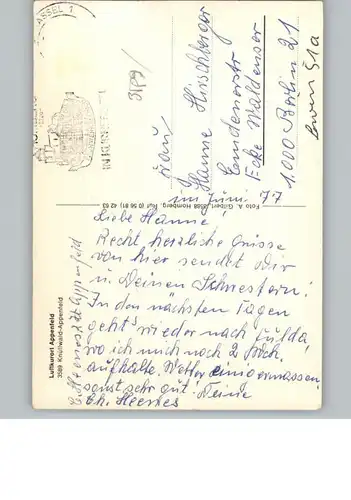 KASSEL 1
3589
im Juni 77
Liebe Hanne!
Recht herzliche Grüsse
von hier sendet Dir
u. Deinen Schwestern!
In den nächsten Tagen
geht's wieder nach Fulda,
wo ich mich noch 2 Woch.
aufhalte. Wetter einigermassen,
sonst sehr gut. Deine
Ch. Heenes
Frau
Hanne Hirschberger
Emdenerstr
Ecke Waldenser
1.000 Berlin 21
Foto A. Gilbert 3588 Homberg, Ruf (0 56 81) 42 63
Luftkurort Appenfeld
3589 Knüllwald-Appenfeld